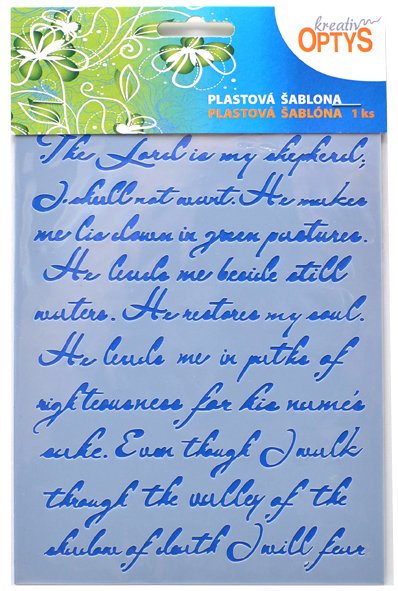 kreativ
OPTYS
PLASTOVÁ ŠABLONA
PLASTOVÁ ŠABLÓNA 1 ks
The Lord is my shepherd;
I shall not want. He makes
me lie down in green pastures.
He leads me beside still
waters. He restores my soul.
He leads me in paths of
righteousness for his name's
sake. Even though I walk
through the valley of the
shadow of death I will fear